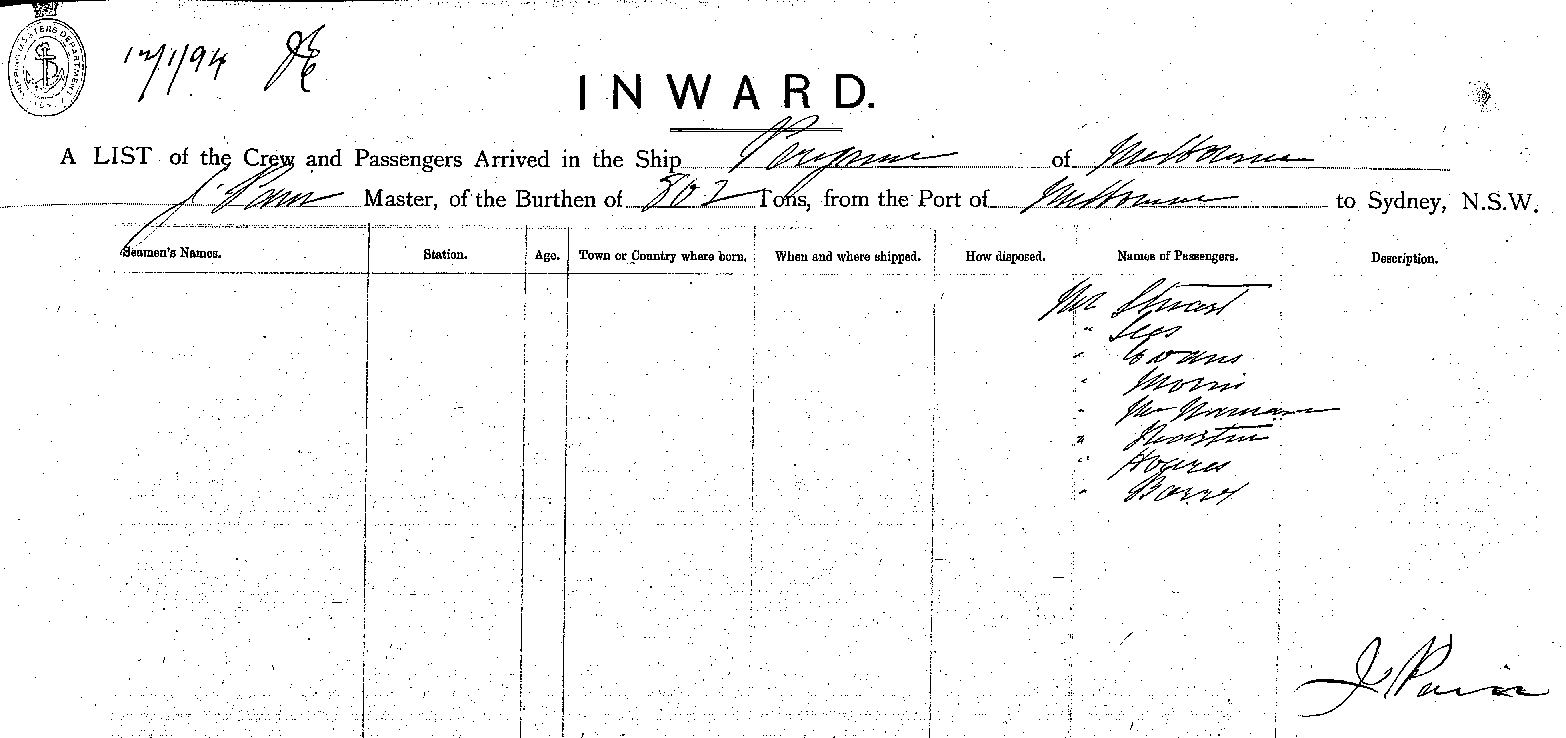 SHIPPING MASTERS DEPARTMENT
12/1/94
INWARD.
A LIST of the Crew and Passengers Arrived in the Ship of Melbourne
J. Pain Master, of the Burthen of 302 Tons, from the Port of Melbourne to Sydney, N.S.W.
Seamen's Names. Station. Age. Town or Country where born. When and where shipped. How disposed. Names of Passengers. Description.
Mr Stuart
" Lees
" Evans
" Morris
" McNamara
" Martin
"
" Barry
J. Pain